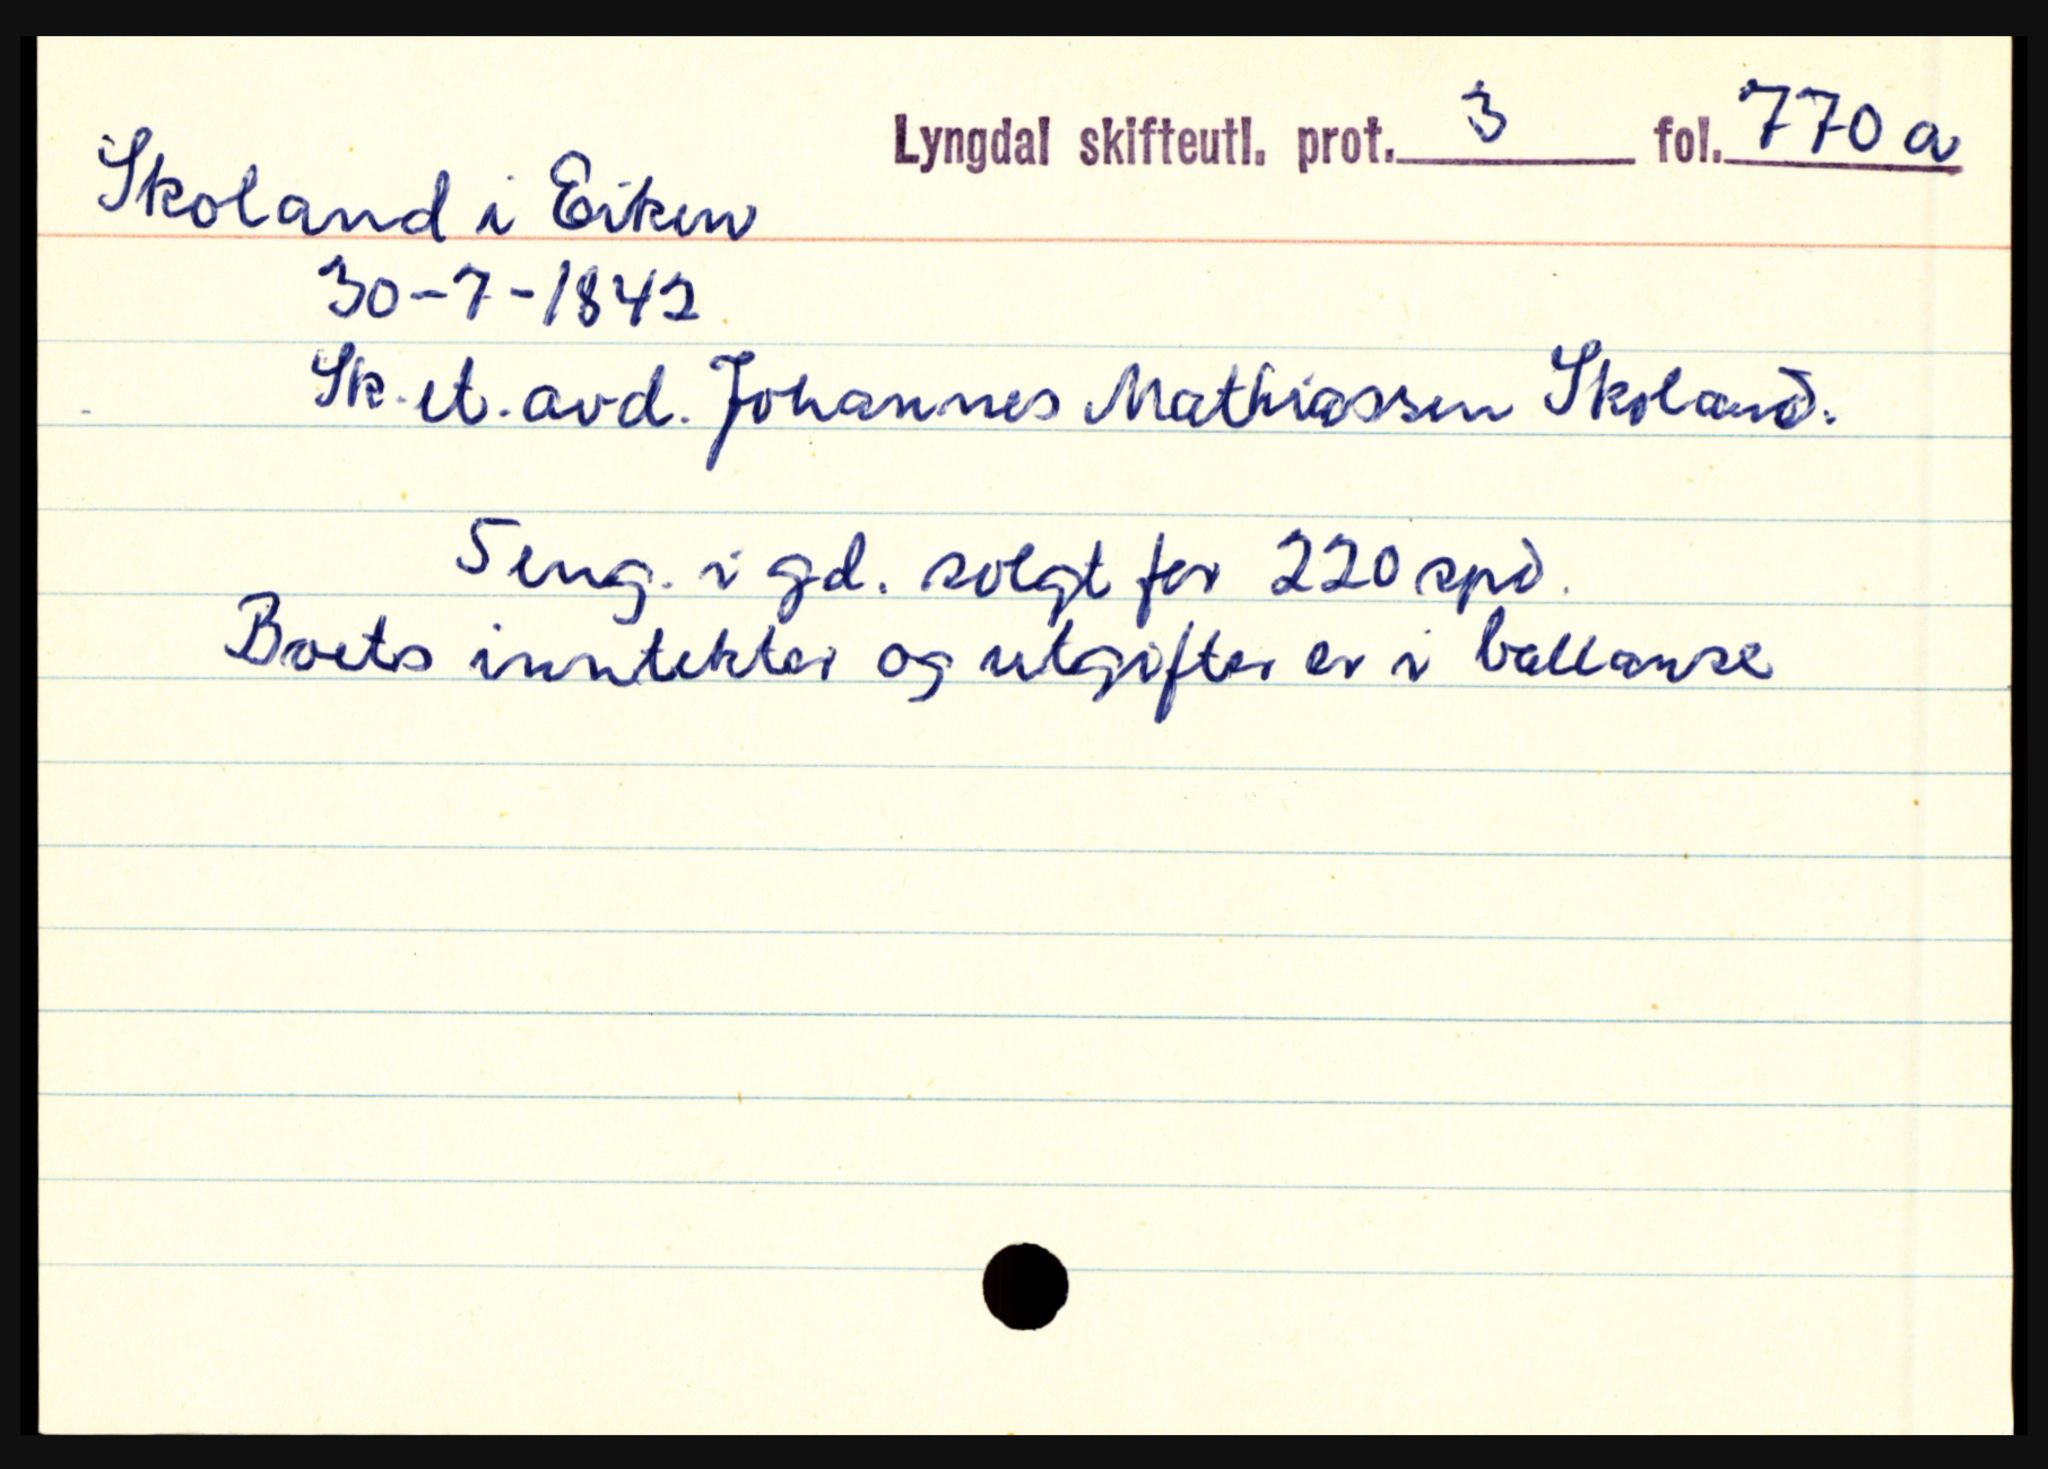 Lyngdal skifteutl. prot. 3 fol. 770 a
Skoland i Eiken
30-7-1842
Sk. et. avd. Johannes Mathiassen Skoland.
5 eng. i gd. solgt for 220 spd.
Boets inntekter og utgifter er i ballanse